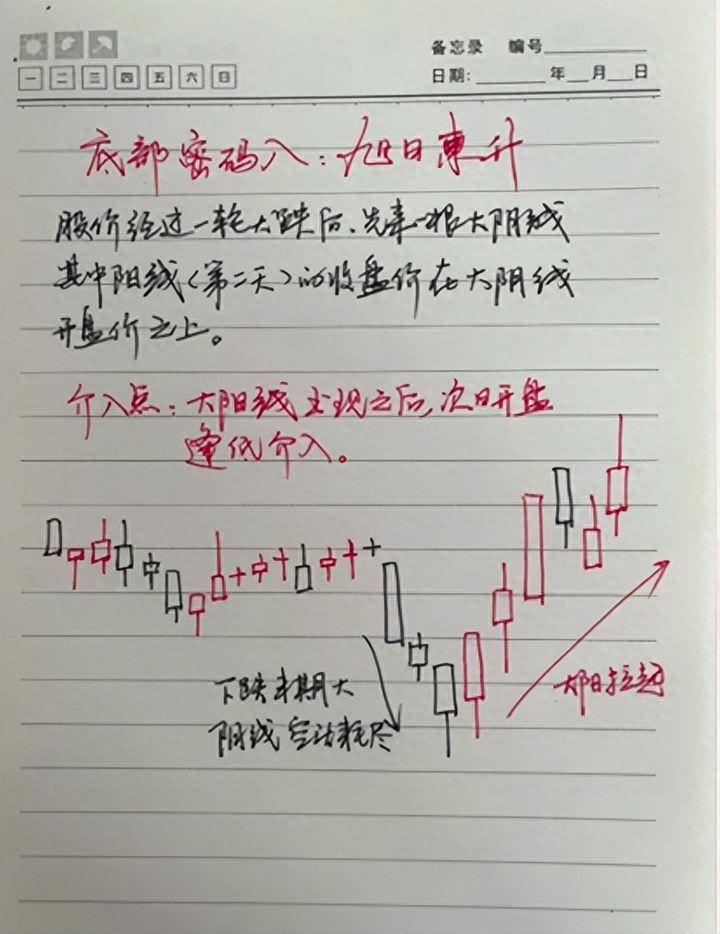 备忘录 编号
一 二 三 四 五 六 日
日期: 年 月 日
底部密码八：旭日東升
股价经过一轮大跌后、先来一根大阴线
其中阳线（第二天）的收盘价在大阴线
开盘价之上。
介入点：大阳线出现之后，次日开盘
逢低介入。
下跌末期大
阴线空方耗尽
大阳拉起